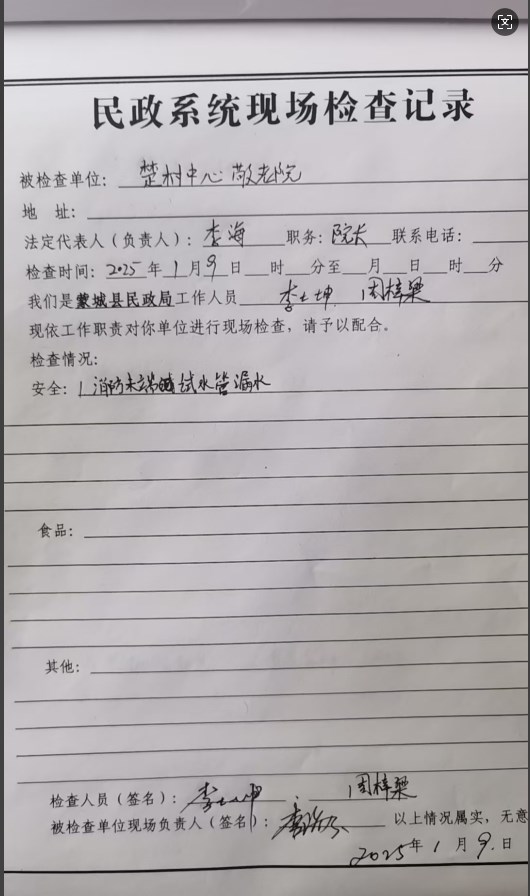 民政系统现场检查记录
被检查单位：楚村中心敬老院
地　址：
法定代表人（负责人）：李海　职务：院长　联系电话：
检查时间：2025年1月9日　时　分至　月　日　时　分
我们是蒙城县民政局工作人员　李士坤　周梓梁
现依工作职责对你单位进行现场检查，请予以配合。
检查情况：
安全：1消防末端试水管漏水
食品：
其他：
检查人员（签名）：李士坤．周梓梁
被检查单位现场负责人（签名）：　以上情况属实，无意
2025年1月9.日